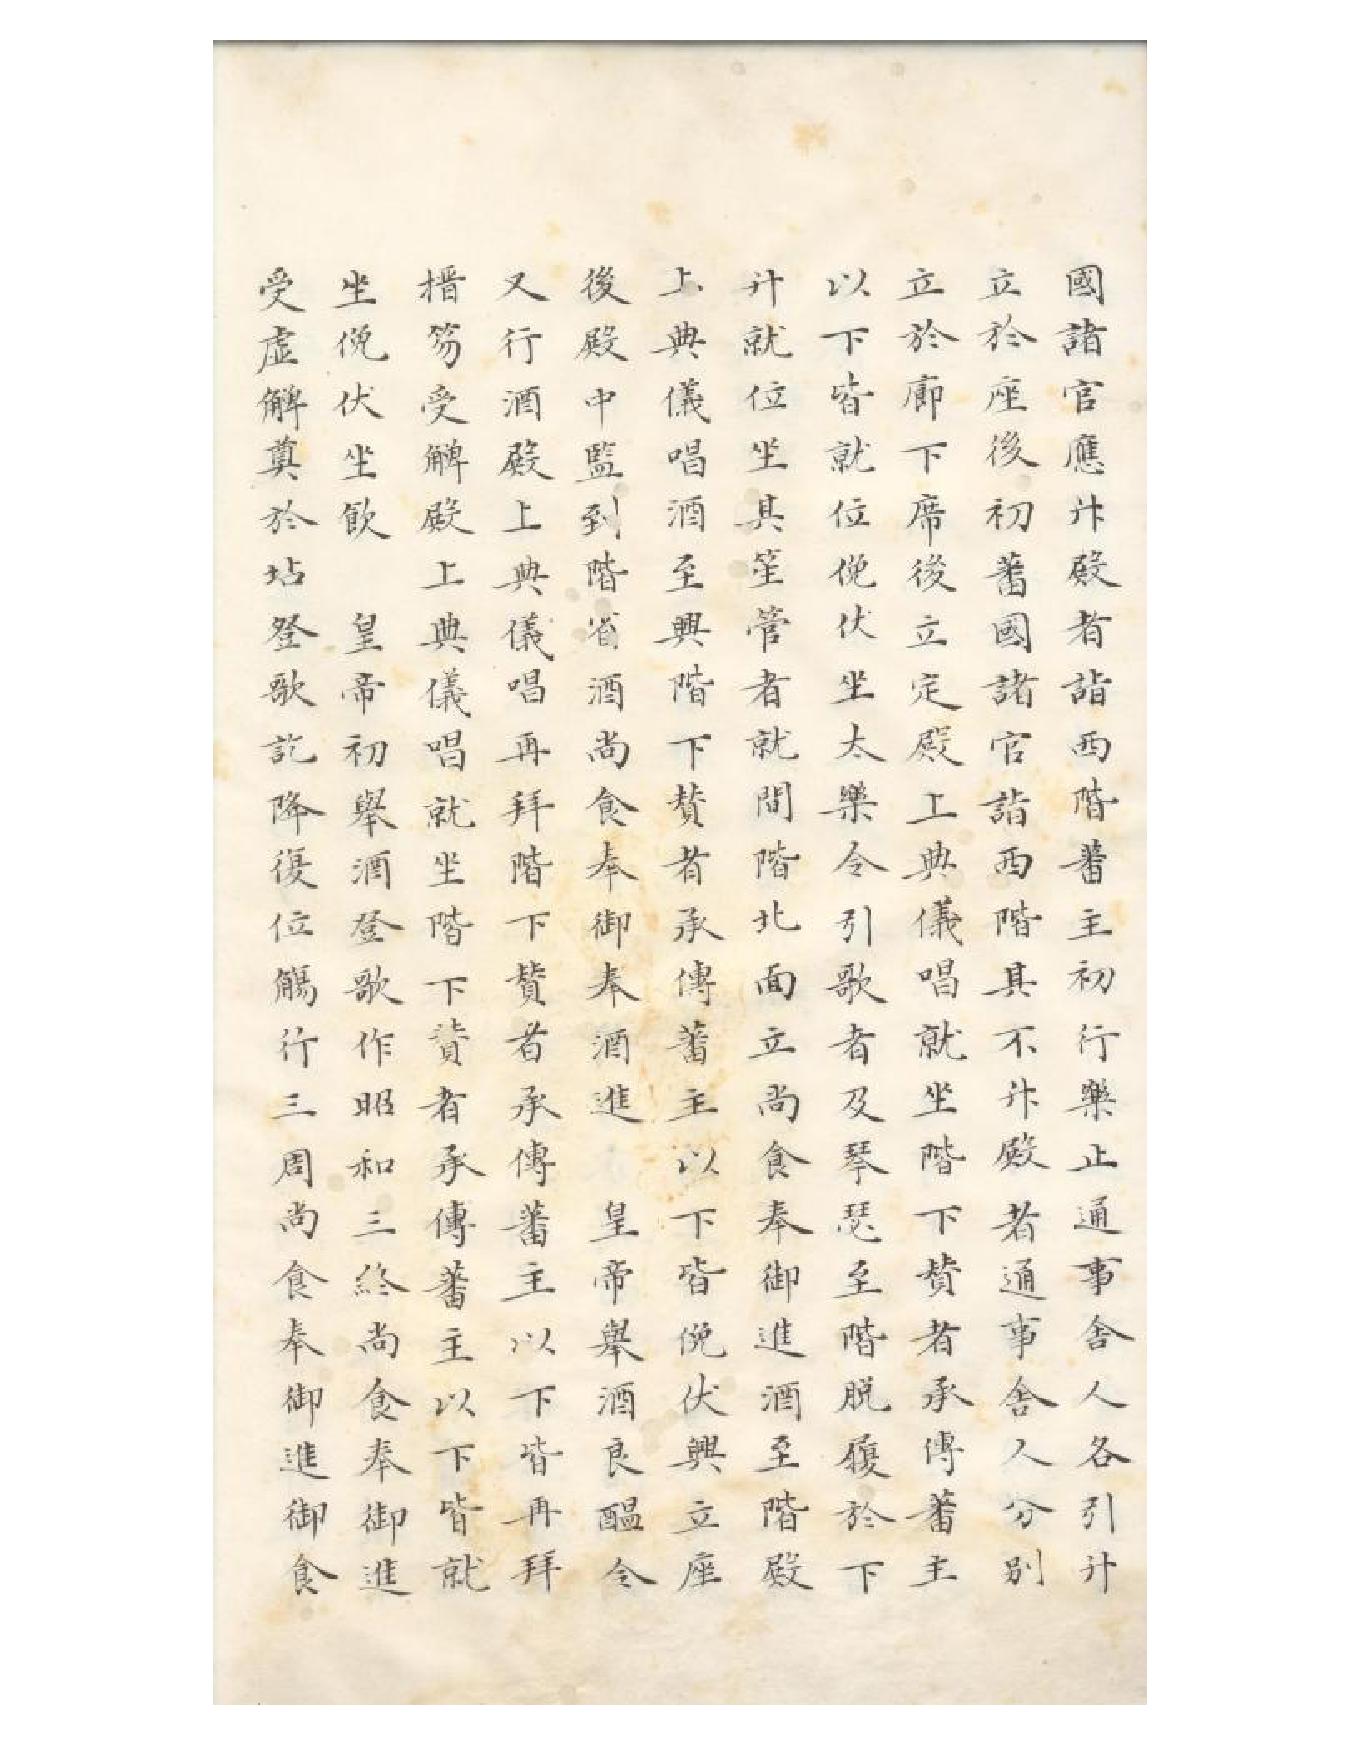 國諸官應升殿者詣西階蕃主初行樂止通事舍人各引升
立於座後初蕃國諸官詣西階其不升殿者通事舍人分別
立於廊下席後立定殿上典儀唱就坐階下贊者承傳蕃主
以下皆就位俛伏坐太樂令引歌者及琴瑟至階脫履於下
升就位坐其笙管者就間階北面立尚食奉御進酒至階殿
上典儀唱酒至興階下贊者承傳蕃主以下皆俛伏興立座
後殿中監到階省酒尚食奉御奉酒進　皇帝舉酒良醞令
又行酒殿上典儀唱再拜階下贊者承傳蕃主以下皆再拜
搢笏受觶殿上典儀唱就坐階下贊者承傳蕃主以下皆就
坐俛伏坐飲　皇帝初舉酒登歌作昭和三終尚食奉御進
受虛觶奠於坫登歌訖降復位觴行三周尚食奉御進御食